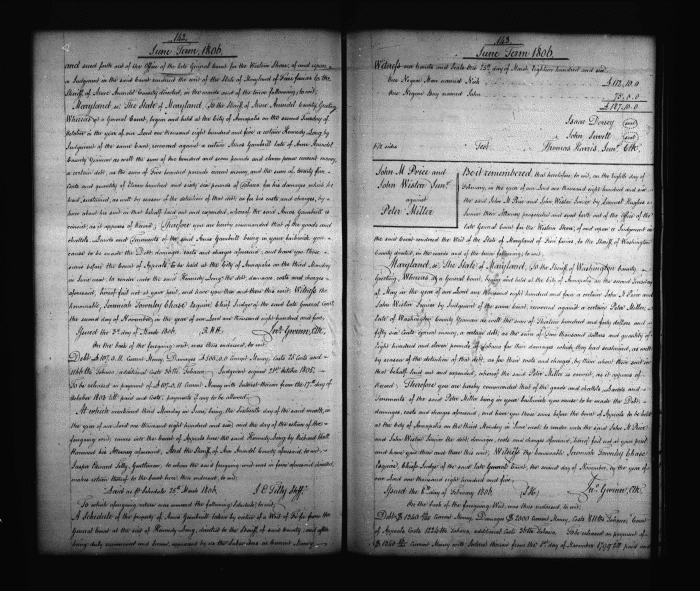 142.
June Term, 1806.
and sued forth out of the Office of the late General Court for the Western Shore, of and upon
a Judgment in the said Court rendered the writ of the State of Maryland of Fieri facias to the
Sheriff of Anne Arundel County directed, in the words and of the tenor following; to wit;
Maryland sc. The State of Maryland, To the Sheriff of Anne Arundel County, Greeting
Whereas at a General Court, begun and held at the City of Annapolis on the second Tuesday of
October in the year of our Lord one thousand eight hundred and five a certain
Judgment of the same Court, recovered against a certain Anna Gambrill late of Anne Arundel
County as well the sum of two hundred and seven pounds and eleven pence current money,
a certain debt, as the sum of Five hundred pounds current money, and the sum of twenty five
Cents and quantity of Eleven hundred and sixty six pounds of Tobacco for his damages which he
had, sustained, as well by reason of the detention of that debt, as for his costs and charges, by
him about his suit in that behalf laid out and expended, whereof the said Anna Gambrill is
convict, as it appears of Record; Therefore you are hereby commanded that of the goods and
chattels, Lands and Tenements of the said Anna Gambrill being in your bailiwick you
cause to be made the Debt, damages, costs and charges aforesaid, and have you those
sums before the Court of Appeals, to be held at the City of Annapolis on the third Monday
in June next, to render unto the said the debt, damages, costs and charges
aforesaid, hereof fail not at your peril, and have you then and there this writ; Witness the
honorable, Jeremiah Townley Chase Esquire Chief Judge of the said late General Court,
the second day of November, in the year of our Lord one thousand eight hundred and five.
Issued the 5th day of March 1806.
Jno. Gwinn, Clk.
On the back of the foregoing writ, was thus endorsed, to wit:
Debt Current Money, Damages £500.0.0 Current Costs 25 Cents and
1166 lbs Tobacco, additional Costs Tobacco. Judgment October 1805,
To be released on payment of Current Money with Interest thereon from the 17th day of
October till paid and Costs, payments if any to be allowed.
At which mentioned third Monday in June, being the sixteenth day of the said month, in
the year of our Lord one thousand eight hundred and six, and the day of the return of the
foregoing writ, comes into the Court of Appeals here the said by
Harwood his Attorney aforesaid, And the Sheriff of Ann Arundel County aforesaid, to wit:
Jasper Edward Tilly, Gentleman, to whom the said foregoing writ was in form aforesaid directed,
makes return thereof to the Court here, thus endorsed, to wit:
Laid as pr Schedule 25th March 1806. J. E. Tilly Shff.
To which aforegoing return was annexed the following Schedule; to wit:
A Schedule of the property of Anna Gambrill taken by virtue of a Writ of Fi: fa: from the
General Court at the suit of directed to the Sheriff of said County, and after
being duly summoned and sworn, appraised by us the Subscribers in Current Money.
143.
June Term, 1806.
Witness our hands and Seals this 25th day of March, eighteen hundred and six.
One Negro Man named Nick £112.10.0
One Negro Boy named John 75.0.0
£187.10.0
Isaac Dorsey (seal)
John Sewell (seal)
Test Thomas Harris, Junr. Clk.
John M Price and
John Wister Junr.
against
Peter Miller
Be it remembered, that heretofore, to wit, on the eighth day of
February, in the year of our Lord one thousand eight hundred and six
the said John M Price and John Wister Junior by Samuel Hughes
their Attorney prosecuted and sued forth out of the Office of the
late General Court for the Western Shore, of and upon a Judgment in
the said Court rendered the Writ of the State of Maryland of Fieri facias, to the Sheriff of Washington
County directed, in the words and of the tenor following; to wit;
Maryland sc. The State of Maryland, To the Sheriff of Washington County
Greeting, Whereas at a General Court, begun and held at the City of Annapolis on the second Tuesday
of May in the year of our Lord one thousand eight hundred and four a certain John M Price and
John Wister Junior by Judgment of the same Court, recovered against a certain Peter Miller,
late of Washington County as well the sum of Thirteen hundred and forty dollars and
fifty six Cents current money, a certain debt, as the sum of Two thousand dollars and quantity of
Eight hundred and eleven pounds of Tobacco for their damages which they had sustained, as well
by reason of the detention of that debt, as for their costs and charges, by them about their suit in
that behalf laid out and expended, whereof the said Peter Miller is convict, as it appears of
Record; Therefore you are hereby commanded that of the goods and chattels, Lands and
Tenements of the said Peter Miller being in your bailiwick you cause to be made the Debt,
damages, costs and charges aforesaid, and have you those sums before the Court of Appeals to be held
at the City of Annapolis on the third Monday in June next to render unto the said John M Price
and John Wister Junior the debt, damages, costs and charges aforesaid, hereof fail not at your peril,
and have you then and there this writ; Witness the honorable Jeremiah Townley Chase
Esquire, Chief Judge of the said late General Court, the second day of November, in the year of
our Lord one thousand eight hundred and five.
Issued the 8th day of February 1806.
Jno. Gwinn, Clk.
On the back of the foregoing Writ, was thus endorsed, to wit:
Debt $ Current Money, Damages $2000 Current Money, Costs 811 lbs Tobacco, Court
of Appeals Costs Tobacco, additional Costs Tobacco. To be released on payment of
Current Money with Interest thereon from the 1st day of November till paid and